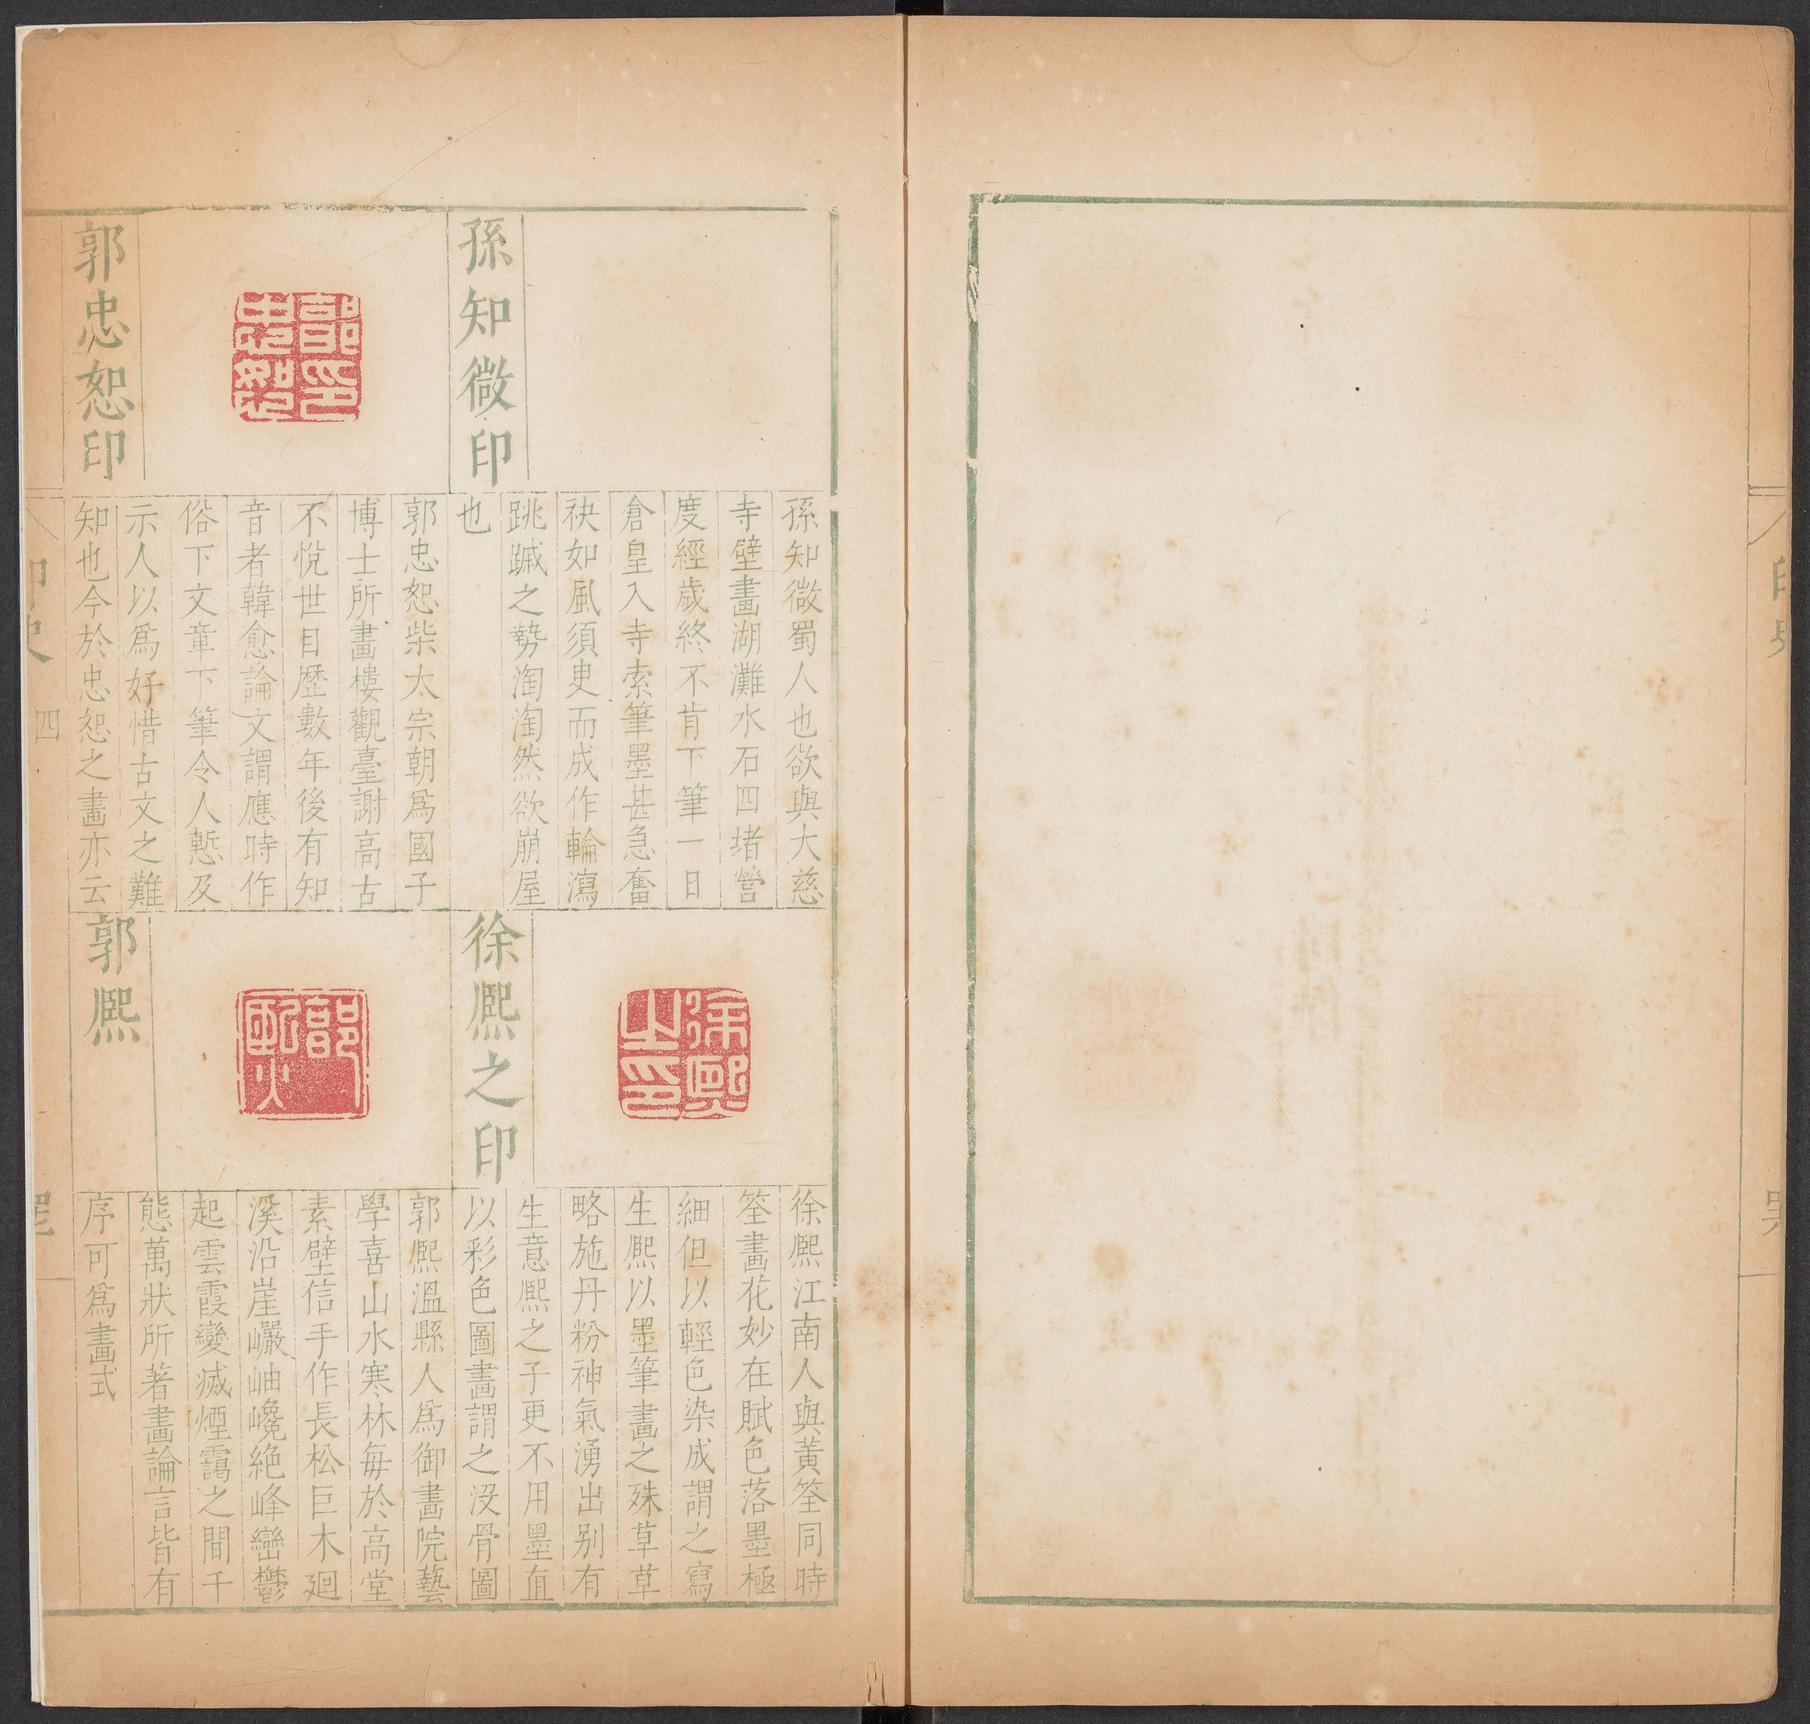 孫知微印
孫知微蜀人也欲與大慈
寺壁畫湖灘水石四堵營
度經歲終不肯下筆一日
倉皇入寺索筆墨甚急奮
袂如風須臾而成作輪瀉
跳蹴之勢淘淘然欲崩屋
也
郭忠恕印
郭忠恕柴太宗朝為國子
博士所畫樓觀臺謝高古
不悅世目歷數年後有知
音者韓愈論文謂應時作
俗下文章下筆令人慙及
示人以為好惜古文之難
知也今於忠恕之畫亦云
徐熈之印
徐熈江南人與黃筌同時
筌畫花妙在賦色落墨極
細但以輕色染成謂之寫
生熈以墨筆畫之殊草草
略施丹粉神氣湧出別有
生意熈之子更不用墨直
以彩色圖畫謂之没骨圖
郭熈
郭熈溫縣人為御畫院藝
學喜山水寒林每於高堂
素壁信手作長松巨木廻
溪沿崖巗岫巉絶峰巒鬱
起雲霞變滅煙靄之間千
態萬狀所著畫論言皆有
序可為畫式
印史
四